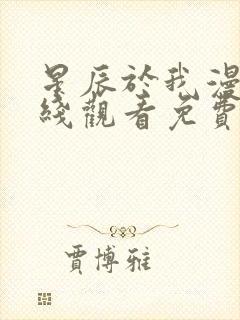 星辰於我漫
綫觀看免費
賈博雅